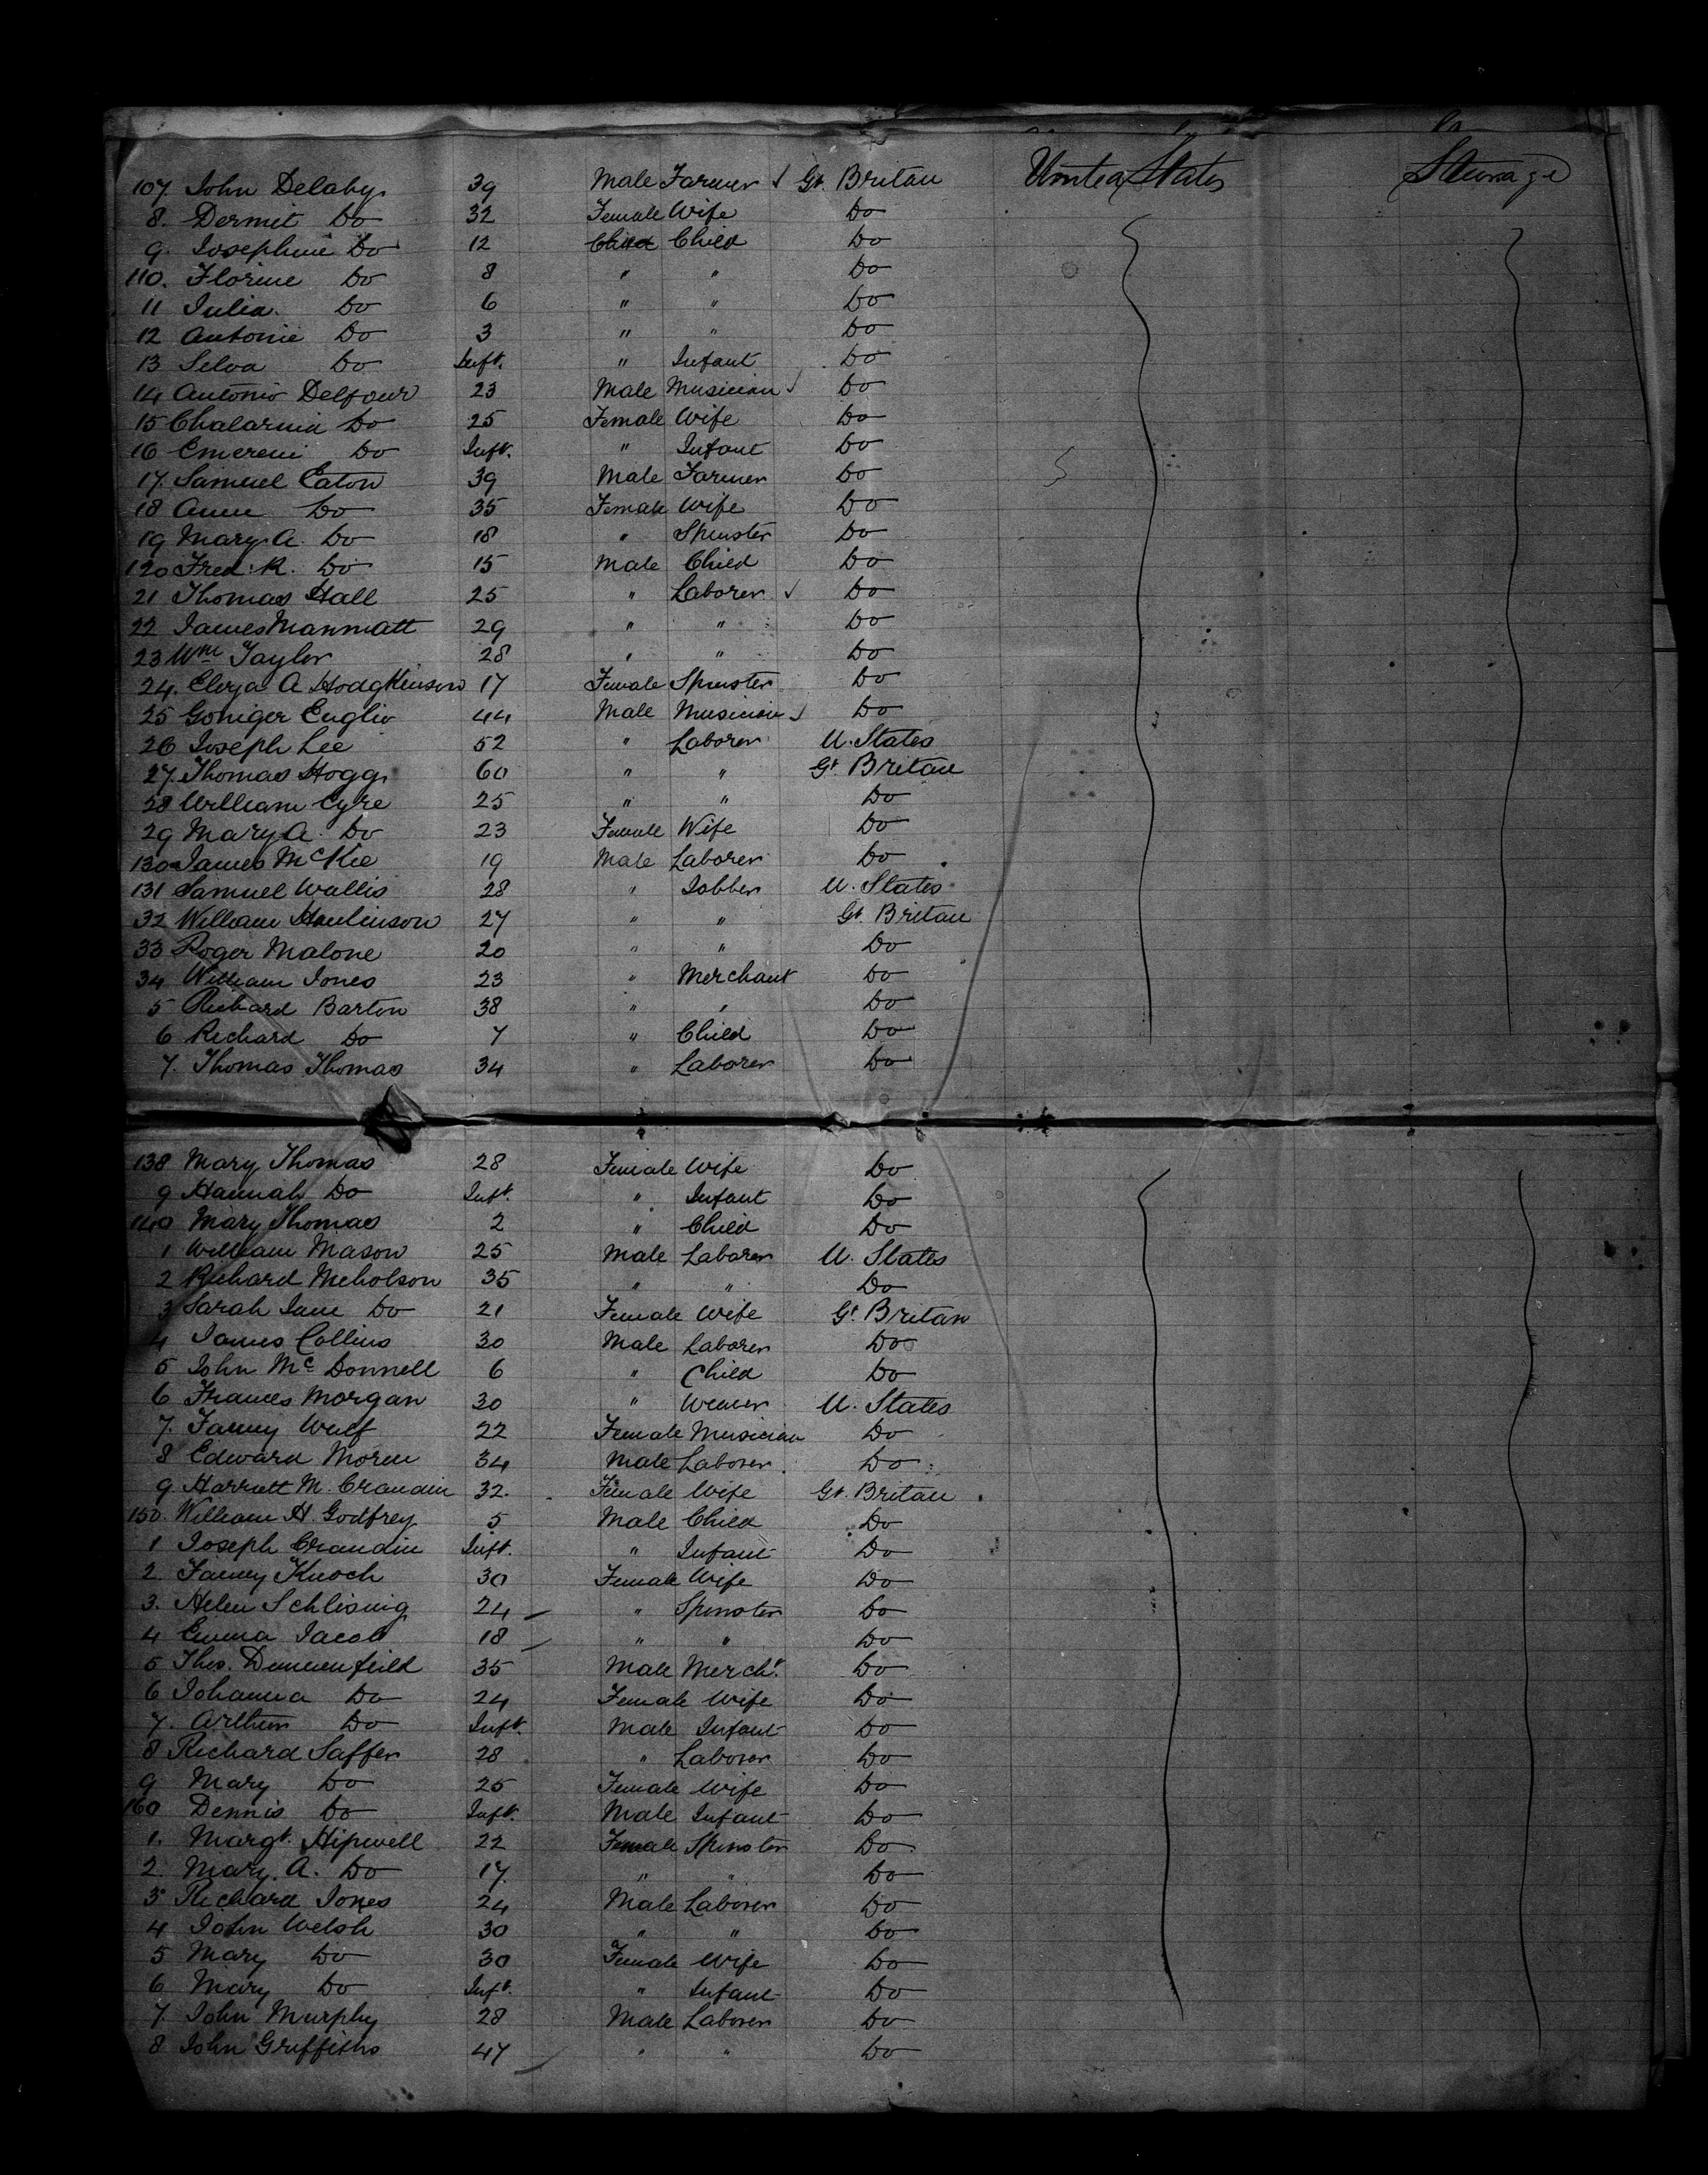 107 John Delaby 39 Male Farmer √ Gt. Britan United States Sturage
8. Dermit Do 32 Female Wife Do
9. Josephine Do 12 Child Child Do
110. Florine Do 8 " " Do
11 Julia Do 6 " " Do
12 Antonie Do 3 " " Do
13 Selva Do Inft. " Infant Do
14 Antonio Delfour 23 Male Musician √ Do
15 Do 25 Female Wife Do
16 Do Inft. " Infant Do
17. Samuel Eaton 39 Male Farmer Do
18 Ann Do 35 Female Wife Do
19 Mary A. Do 18 " Spinster Do
120 Fred. K. Do 15 Male Child Do
21 Thomas Hall 25 " Laborer √ Do
22 James Manmatt 29 " " Do
23 Wm Taylor 28 " " Do
24. Eliza A Hodgkinson 17 Female Spinster Do
25 Goniger Englio 44 Male Musician √ Do
26 Joseph Lee 52 " Laborer U. States
27. Thomas Hogg 60 " " Gt. Britan
28 William Eyre 25 " " Do
29 Mary A. Do 23 Female Wife Do
130 James McKie 19 Male Laborer Do
131 Samuel Wallis 28 " Jobber U. States
32 William 27 " " Gt. Britan
33 Roger Malone 20 " " Do
34 William Jones 23 " Merchant Do
5 Richard Barton 38 " " Do
6 Richard Do 7 " Child Do
7. Thomas Thomas 34 " Laborer Do
138 Mary Thomas 28 Female Wife Do
9 Hannah Do Inft. " Infant Do
140 Mary Thomas 2 " Child Do
1 William Mason 25 Male Laborer U. States
2 Richard Nicholson 35 " " Do
3 Sarah Jane Do 21 Female Wife Gt. Britan
4 James Collins 30 Male Laborer Do
5 John Mc Donnell 6 " Child Do
6 Frances Morgan 30 " Weaver U. States
7. Fanny Wulf 22 Female Musician Do
8 Edward Moren 34 Male Laborer Do
9 Harriett M. Crandin 32. Female Wife Gt. Britan
150. William H. Godfrey 5 Male Child Do
1 Joseph Crandin Inft. " Infant Do
2 Fanny Knoch 30 Female Wife Do
3. Helen Schlising 24 " Spinster Do
4 Emma Jacob 18 " " Do
5 Thos. Dunnenfeild 35 Male Mercht. Do
6 Johanna Do 24 Female Wife Do
7. Arthur Do Inft. Male Infant Do
8 Richard Saffer 28 " Laborer Do
9 Mary Do 25 Female Wife Do
160 Dennis Do Inft. Male Infant Do
1. Margt. Hipwell 22 Female Spinster Do
2. Mary. A. Do 17. " " Do
3 Richard Jones 24 Male Laborer Do
4 John Welsh 30 " " Do
5 Mary Do 30 Female Wife Do
6 Mary Do Inft. " Infant Do
7. John Murphy 28 Male Laborer Do
8 John Griffiths 47 " " Do